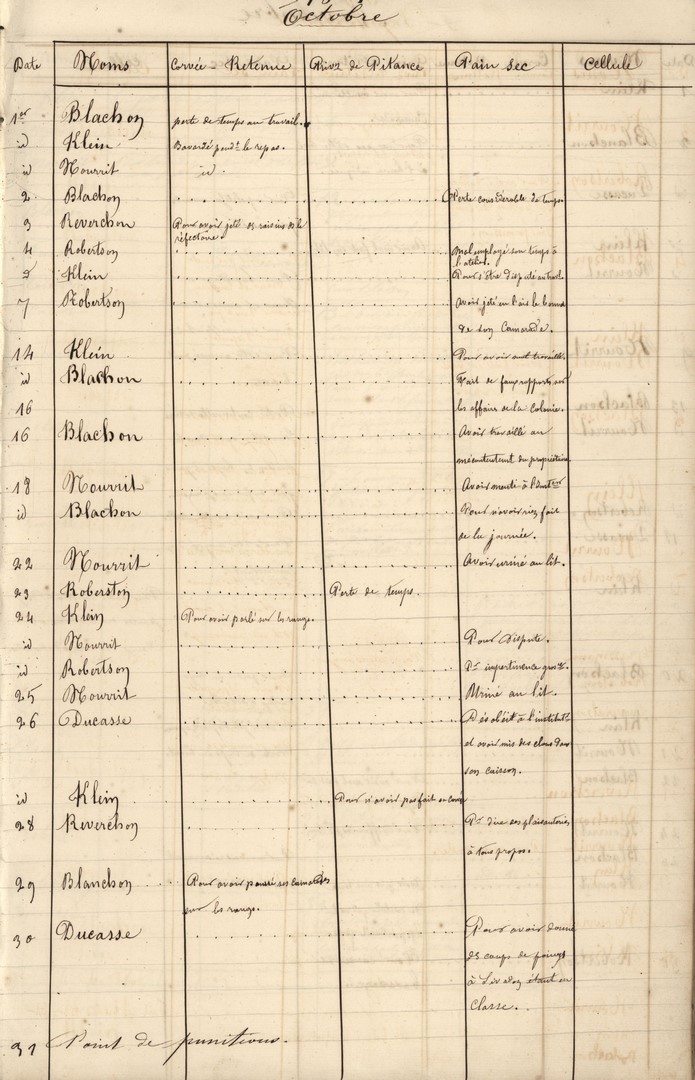 Octobre
Date Noms Corvée - Retenue Privé de Pitance Pain sec Cellule
1er Blachon perte de temps au travail.
id Klein Bavardé pendt le repas.
id Nourrit id.
2 Blachon Perte considérable de temps.
3 Reverchon Pour avoir jeté des raisins ds le
réfectoire.
4 Robertson Mal employé son temps à
l'atelier.
Klein Pour s'être disputé
7 Robertson Avoir jeté en l'air le
de son Camarade.
14 Klein Pour avoir travaillé.
id Blachon Fait de faux rapports sur
16 les affaires de la colonie.
16 Blachon Avoir travaillé au
mécontentement du propriétaire
18 Nourrit Avoir menti à
id Blachon Pour n'avoir rien fait
de la journée.
22 Nourrit Avoir uriné au lit.
23 Roberston Perte de temps.
24 Klein Pour avoir parlé sur les rangs.
id Nourrit Pour dispute.
id Robertson Pr impertinence
25 Nourrit Uriné au lit.
26 Ducasse Désobéit à l'institutr
et avoir mis des clous dans
son caisson.
id Klein Pour n'avoir pas fait sa
28 Reverchon Pr dire des plaisanteries
à tous propos.
29 Blanchon Pour avoir poussé ses camarades
sur les rangs.
30 Ducasse Pour avoir donné
des coups de poings
à étant en
classe.
31 Point de punitions.